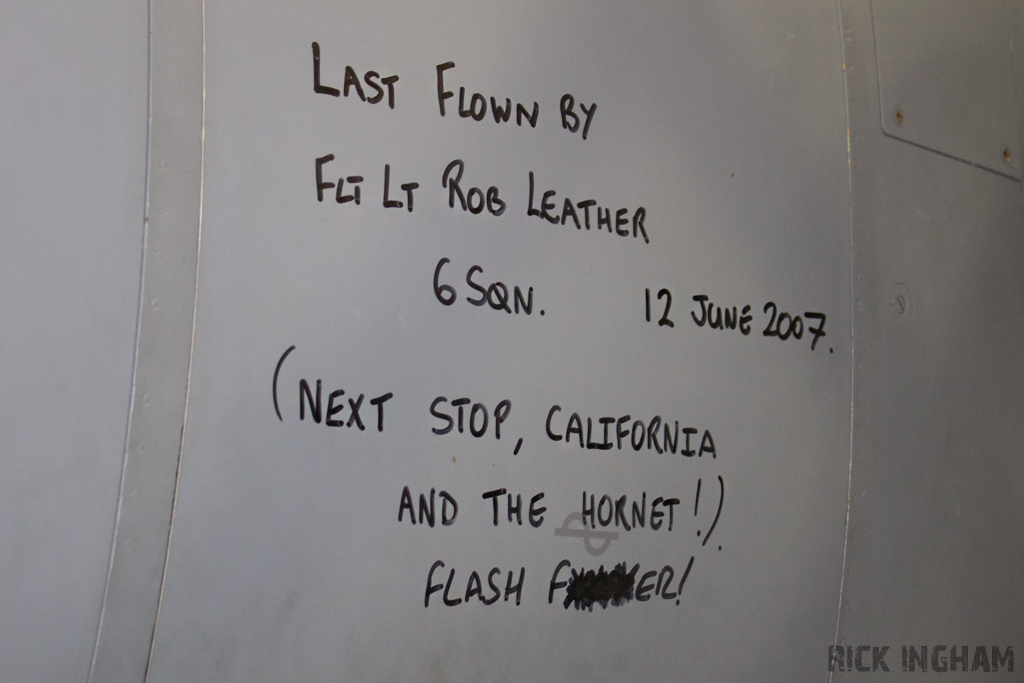 LAST FLOWN BY
FLT LT ROB LEATHER
6 SQN. 12 JUNE 2007.
(NEXT STOP, CALIFORNIA
AND THE HORNET!).
FLASH F ER!
RICK INGHAM